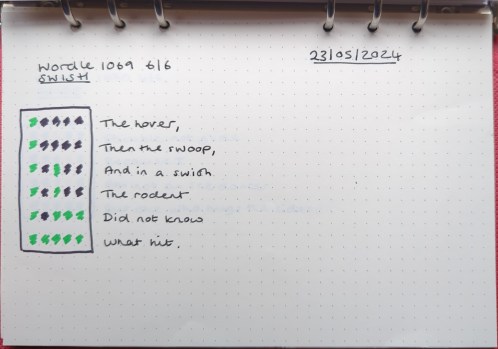 23/05/2024
Wordle 1069 6/6
SWISH
The hover,
Then the swoop,
And in a swish
The rodent
Did not know
What hit.